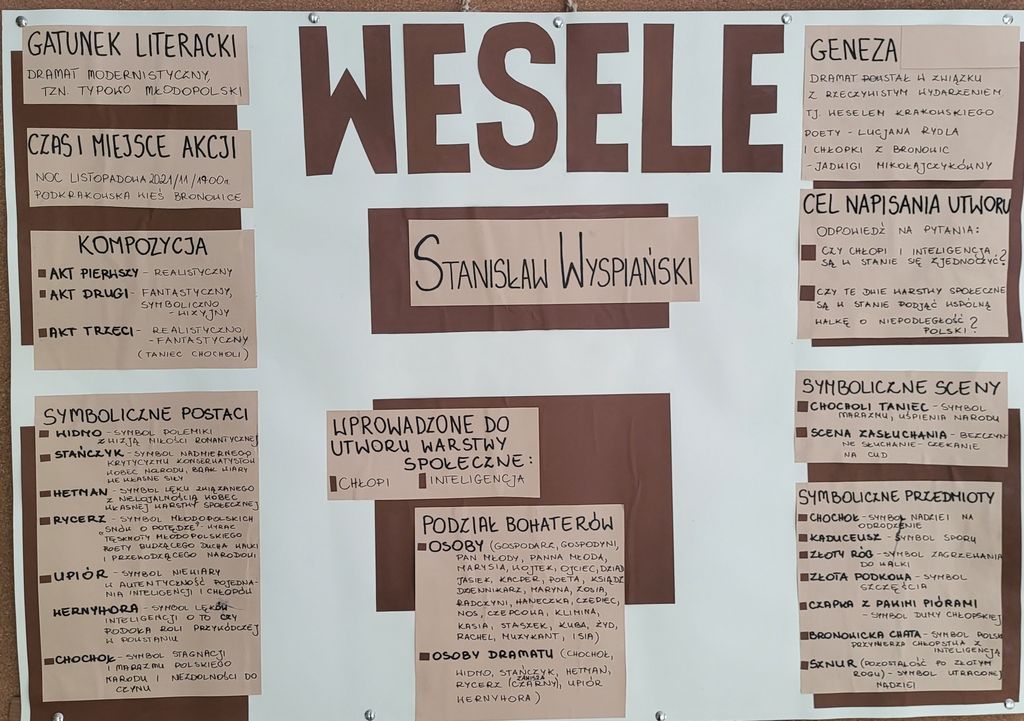 WESELE
STANISŁAW WYSPIAŃSKI
GATUNEK LITERACKI
DRAMAT MODERNISTYCZNY,
TZN. TYPOWO MŁODOPOLSKI
CZAS I MIEJSCE AKCJI
NOC LISTOPADOWA 20/21/11/1900r.
PODKRAKOWSKA WIEŚ BRONOWICE
KOMPOZYCJA
AKT PIERWSZY - REALISTYCZNY
AKT DRUGI - FANTASTYCZNY,
SYMBOLICZNO
- WIZYJNY
AKT TRZECI - REALISTYCZNO
- FANTASTYCZNY
(TANIEC CHOCHOLI)
SYMBOLICZNE POSTACI
WIDMO - SYMBOL POLEMIKI
Z WIZJĄ MIŁOŚCI ROMANTYCZNEJ
STAŃCZYK - SYMBOL NADMIERNEGO
KRYTYCYZMU KONSERWATYSTÓW
WOBEC NARODU, BRAK WIARY
WE WŁASNE SIŁY
HETMAN - SYMBOL LĘKU ZWIĄZANEGO
Z NIELOJALNOŚCIĄ WOBEC
WŁASNEJ WARSTWY SPOŁECZNEJ
RYCERZ - SYMBOL MŁODOPOLSKICH
"SNÓW O POTĘDZE" WYRAZ
TĘSKNOTY MŁODOPOLSKIEGO
POETY BUDZĄCEGO DUCHA WALKI
I PRZEWODZĄCEGO NARODOWI
UPIÓR - SYMBOL NIEWIARY
W AUTENTYCZNOŚĆ POJEDNA-
NIA INTELIGENCJI I CHŁOPÓW
WERNYHORA - SYMBOL LĘKÓW
INTELIGENCJI O TO CZY
PODOŁA ROLI PRZYWÓDCZEJ
W POWSTANIU
CHOCHOŁ - SYMBOL STAGNACJI
I MARAZMU POLSKIEGO
NARODU I NIEZDOLNOŚCI DO
CZYNU
WPROWADZONE DO
UTWORU WARSTWY
SPOŁECZNE:
CHŁOPI INTELIGENCJA
PODZIAŁ BOHATERÓW
OSOBY (GOSPODARZ, GOSPODYNI,
PAN MŁODY, PANNA MŁODA,
MARYSIA, WOJTEK, OJCIEC, DZIAD
JASIEK, KACPER, POETA, KSIĄDZ
DZIENNIKARZ, MARYNA, ZOSIA,
RADCZYNI, HANECZKA, CZEPIEC,
NOS, CZEPCOWA, KLIMINA,
KASIA, STASZEK, KUBA, ŻYD,
RACHEL, MUZYKANT, ISIA)
OSOBY DRAMATU (CHOCHOŁ,
WIDMO, STAŃCZYK, HETMAN,
ZAWISZA
RYCERZ (CZARNY), UPIÓR
WERNYHORA)
GENEZA
DRAMAT POWSTAŁ W ZWIĄZKU
Z RZECZYWISTYM WYDARZENIEM,
TJ. WESELEM KRAKOWSKIEGO
POETY - LUCJANA RYDLA
I CHŁOPKI Z BRONOWIC
- JADWIGI MIKOŁAJCZYKÓWNY
CEL NAPISANIA UTWORU
ODPOWIEDŹ NA PYTANIA:
CZY CHŁOPI I INTELIGENCJA
SĄ W STANIE SIĘ ZJEDNOCZYĆ?
CZY TE DWIE WARSTWY SPOŁECZNE
SĄ W STANIE PODJĄĆ WSPÓLNĄ
WALKĘ O NIEPODLEGŁOŚĆ
POLSKI?
SYMBOLICZNE SCENY
CHOCHOLI TANIEC - SYMBOL
MARAZMU, UŚPIENIA NARODU
SCENA ZASŁUCHANIA - BEZCZYN
NE SŁUCHANIE - CZEKANIE
NA CUD
SYMBOLICZNE PRZEDMIOTY
CHOCHOŁ - SYMBOL NADZIEI NA
ODRODZENIE
KADUCEUSZ - SYMBOL SPORU
ZŁOTY RÓG - SYMBOL ZAGRZEWANIA
DO WALKI
ZŁOTA PODKOWA - SYMBOL
SZCZĘŚCIA
CZAPKA Z PAWIMI PIÓRAMI
- SYMBOL DUMY CHŁOPSKIEJ
BRONOWICKA CHATA - SYMBOL POLSKI
PRZYMIERZA CHŁOPSTWA Z
INTELIGENCJĄ
SZNUR (POZOSTAŁOŚĆ PO ZŁOTYM
ROGU) - SYMBOL UTRACONEJ
NADZIEI